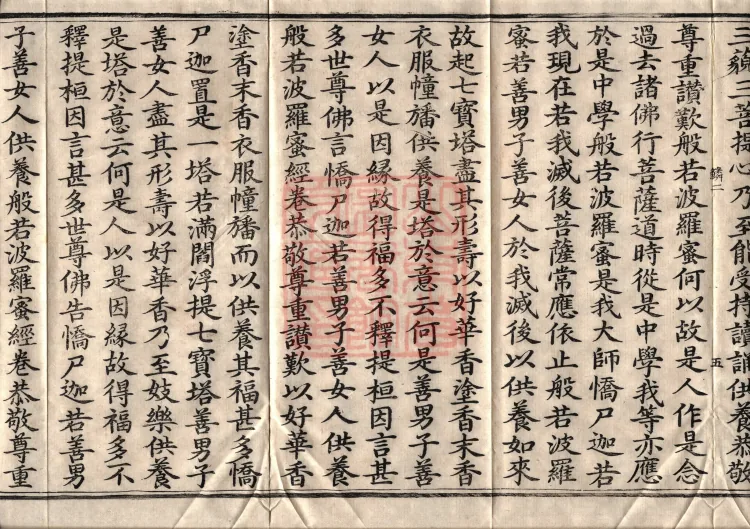 三藐三菩提心乃至能受持讀誦供養恭敬
鱗二 五
尊重讚歎般若波羅蜜何以故是人作是念
過去諸佛行菩薩道時從是中學我等亦應
於是中學般若波羅蜜是我大師憍尸迦若
我現在若我滅後菩薩常應依止般若波羅
蜜若善男子善女人於我滅後以供養如來
故起七寶塔盡其形壽以好華香塗香末香
衣服幢旛供養是塔於意云何是善男子善
女人以是因緣故得福多不釋提桓因言甚
多世尊佛言憍尸迦若善男子善女人供養
般若波羅蜜經卷恭敬尊重讚歎以好華香
塗香末香衣服幢旛而以供養其福甚多憍
尸迦置是一塔若滿閻浮提七寶塔善男子
善女人盡其形壽以好華香乃至妓樂供養
是塔於意云何是人以是因緣故得福多不
釋提桓因言甚多世尊佛告憍尸迦若善男
子善女人供養般若波羅蜜經卷恭敬尊重